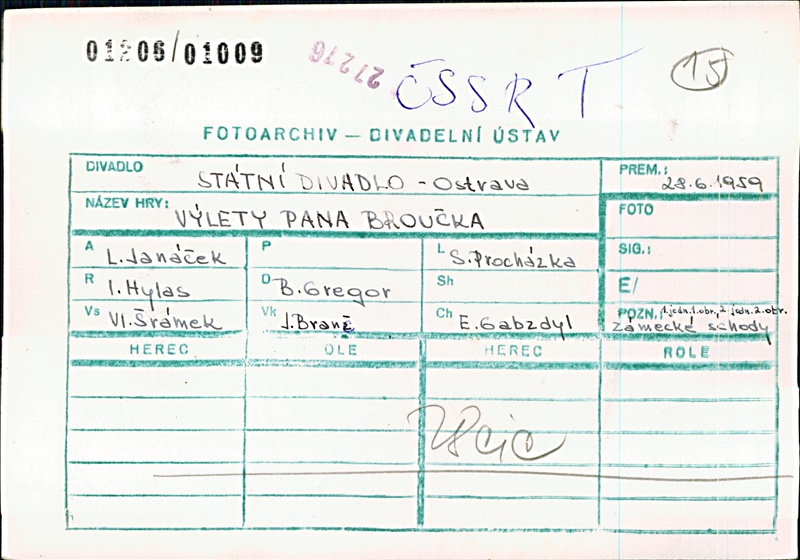 01206/01009
27276
ČSSR T
15
FOTOARCHIV — DIVADELNÍ ÚSTAV
DIVADLO STÁTNÍ DIVADLO - Ostrava
PREM.: 28.6.1959
NÁZEV HRY: VÝLETY PANA BROUČKA
FOTO
A L. Janáček
P
L S. Procházka
SIG.:
R I. Hylas
D B. Gregor
Sh
E/
Vs Vl. Šrámek
Vk J. Braně
Ch E. Gabzdyl
POZN.: 1. jedn. 1. obr., 2. jedn. 2. obr.
Zámecké schody
HEREC OLE HEREC ROLE